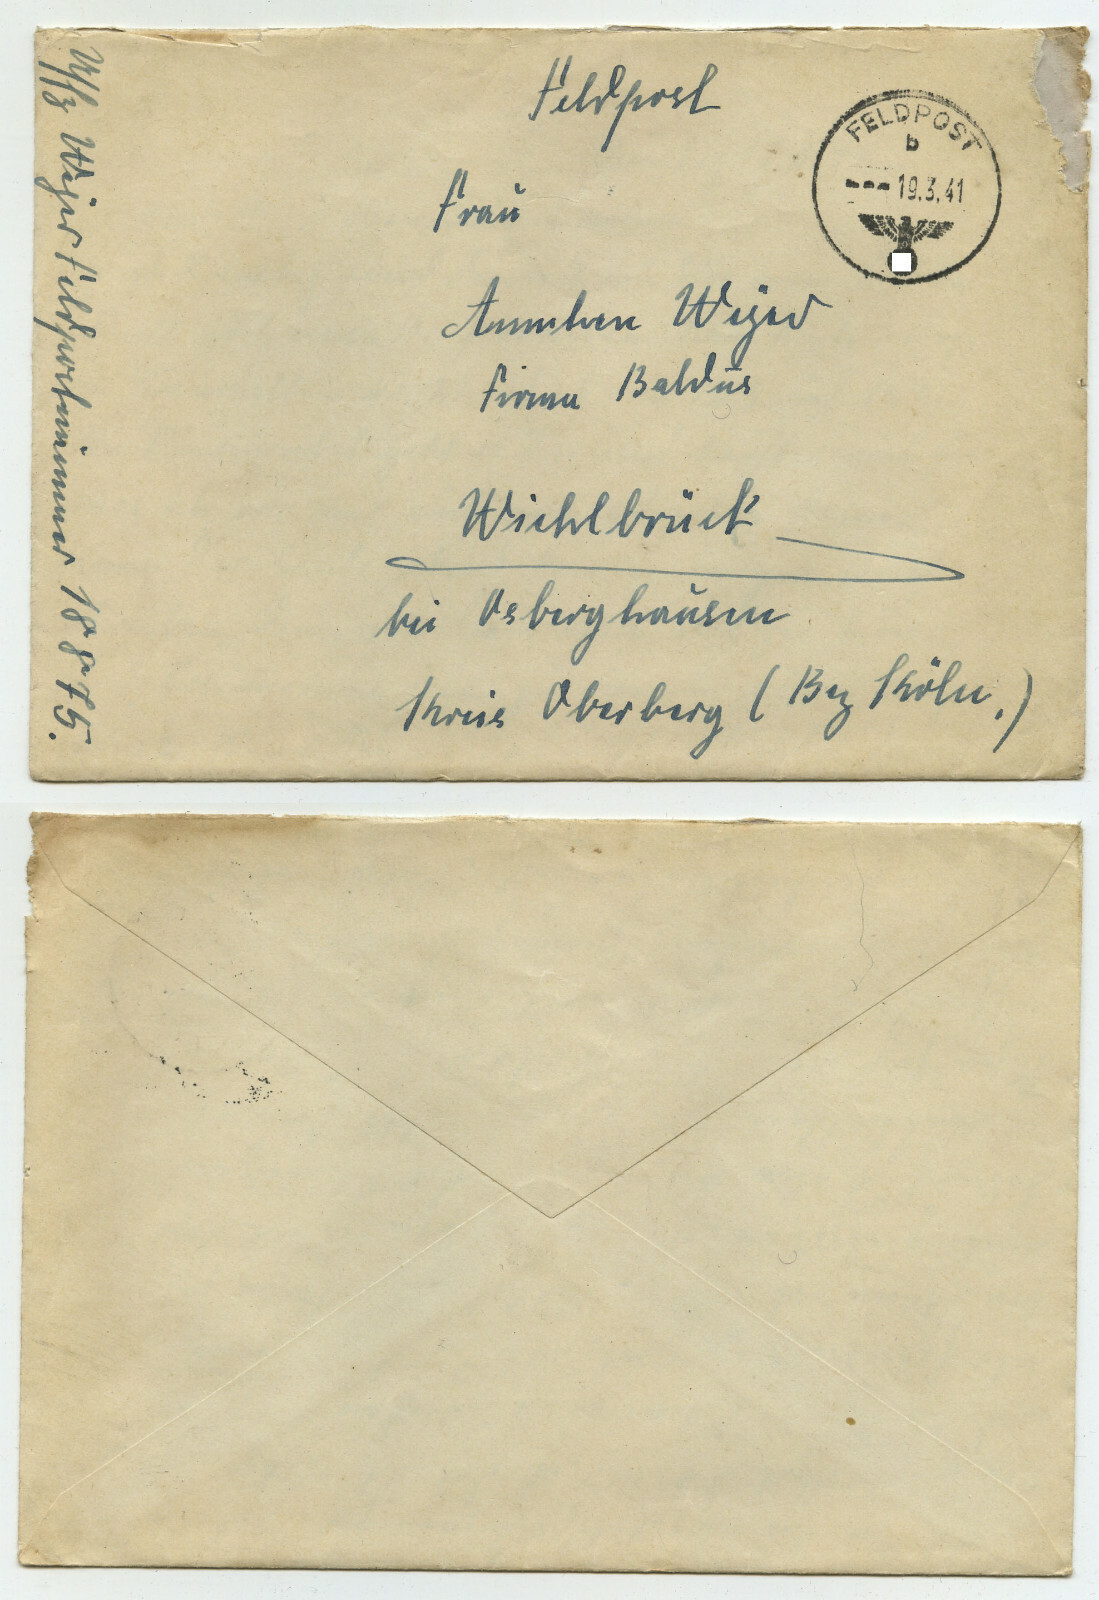 Feldpost
FELDPOST
b
19.3.41
Frau
Weyer
Firma Baldus
Wiehlbrück
bei Osberghausen
Kreis Oberberg (Bez Köln.)
Uffz Weyer Feldpostnummer 18875.